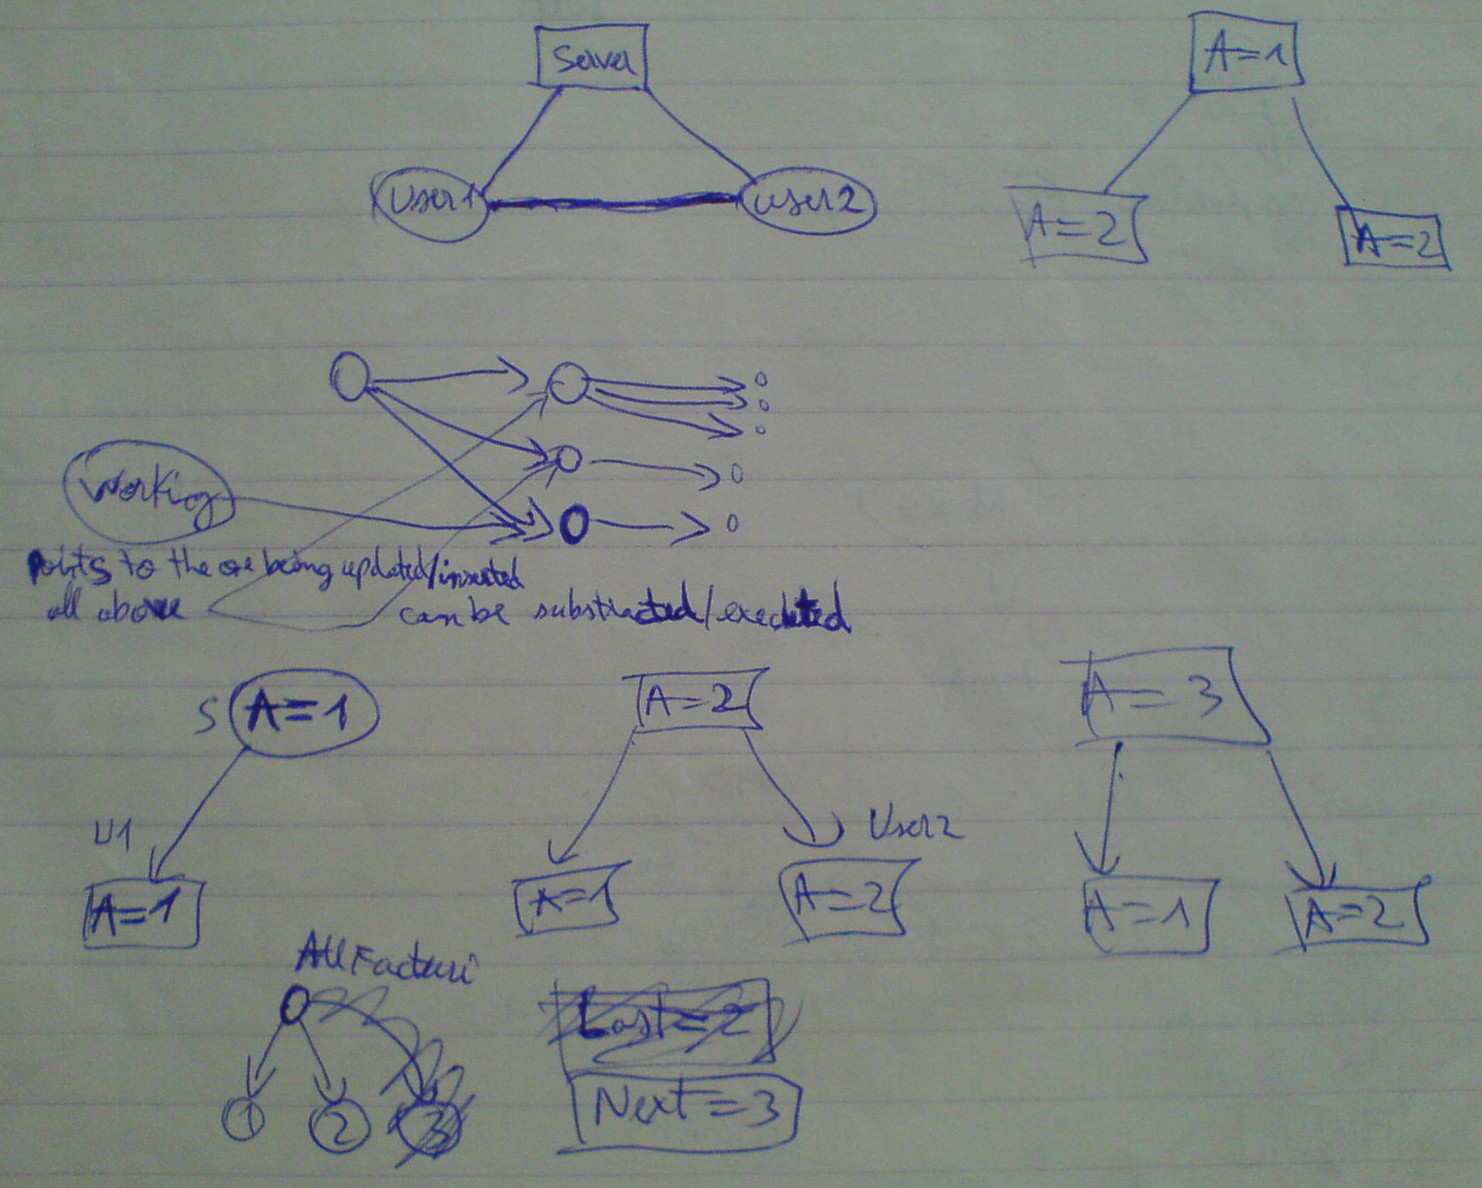 Server
A=1
User1
user2
A=2
A=2
working
points to the one being updated/inserted
all above can be substracted/executed
S A=1
A=2
A=3
U1
User2
A=1
A=1
A=2
A=1
A=2
All Facturi
Last=2
1 2 3
Next=3